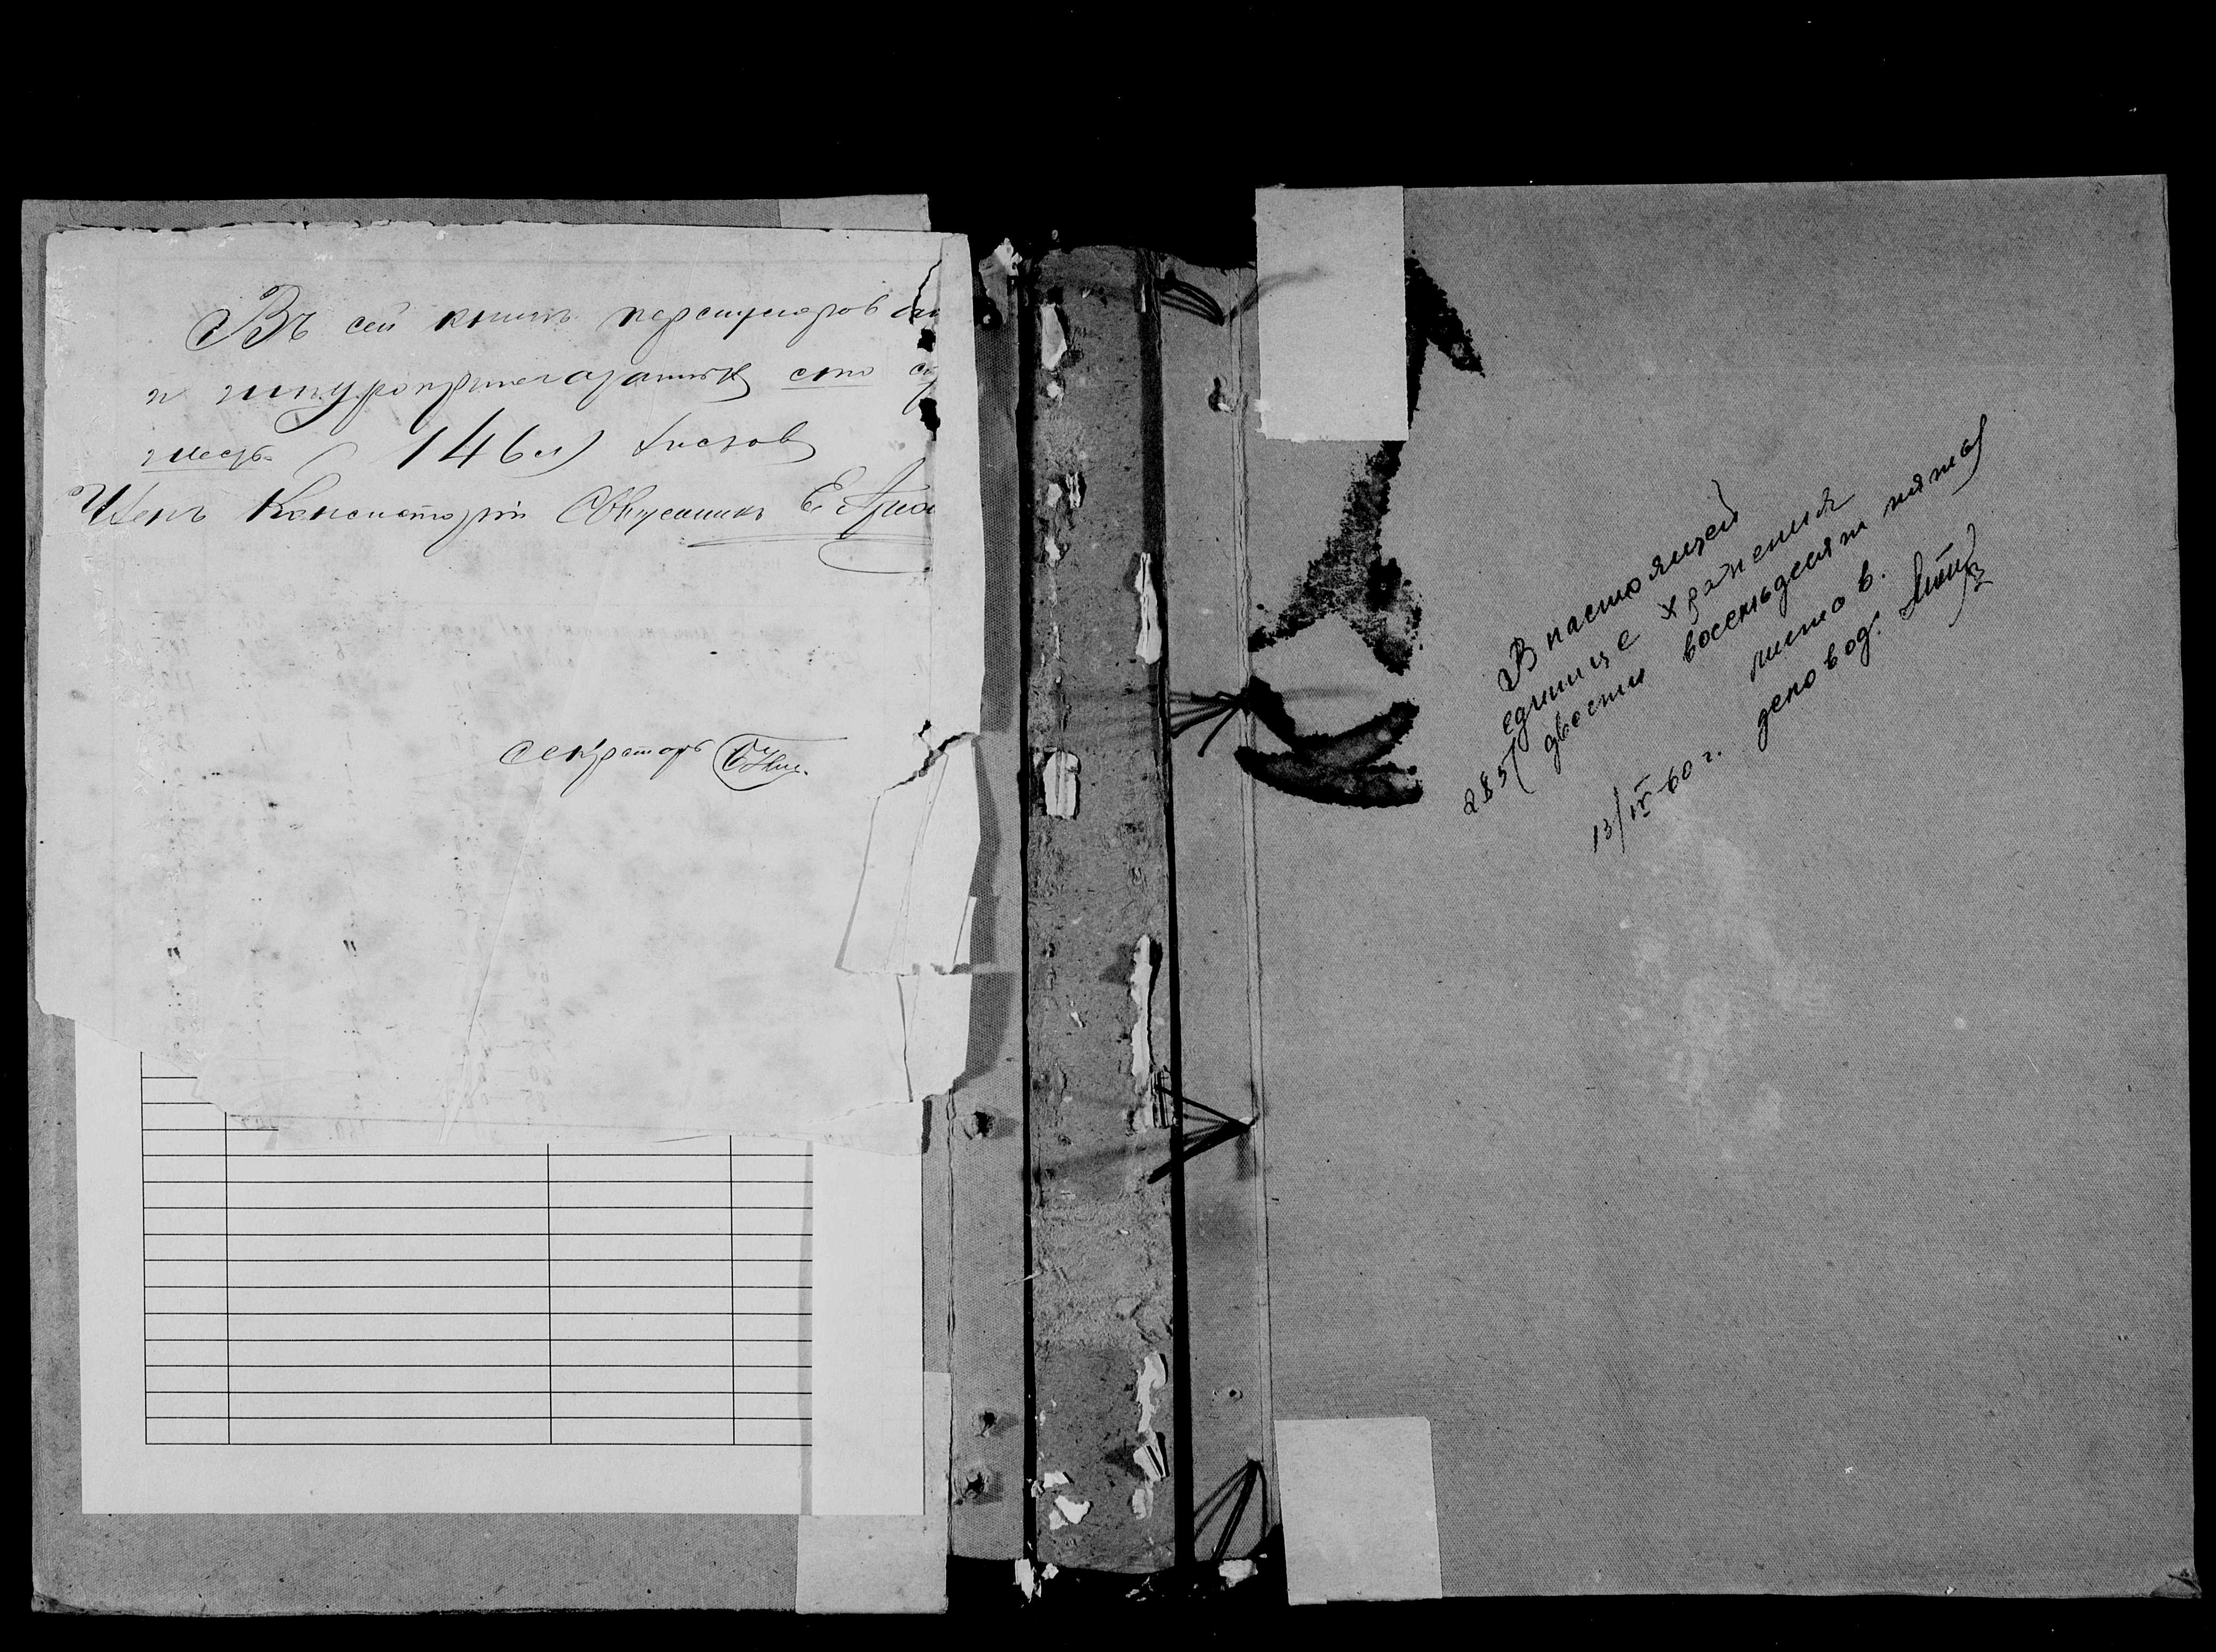 Въ сей книгѣ перенумеров
и шнуроприпечатанныхъ сто
шесть (146 л) листов
Членъ Консисторіи Священникъ Е.
Секретарь
В настоящей
единице хранения
285 (двести восемьдесят пять)
листов.
13/IV-60 г. деловод.